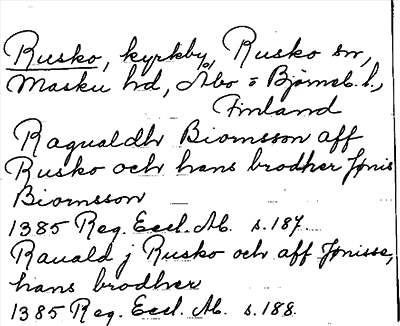 Rusko, kyrkby, Rusko sn,
Masku hd, Åbo o Björneb. l.,
Finland
Ragualdh Biornsson aff
Rusko och hans brodher Jønis
Biornsson
1385 Reg. Eccl. Ab. s. 187.
Rauald j Rusko och aff Jønisse,
hans brodher
1385 Reg. Eccl. Ab. s. 188.